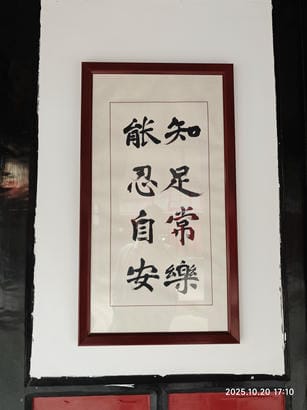 知足常樂
能忍自安
2025.10.20 17:10